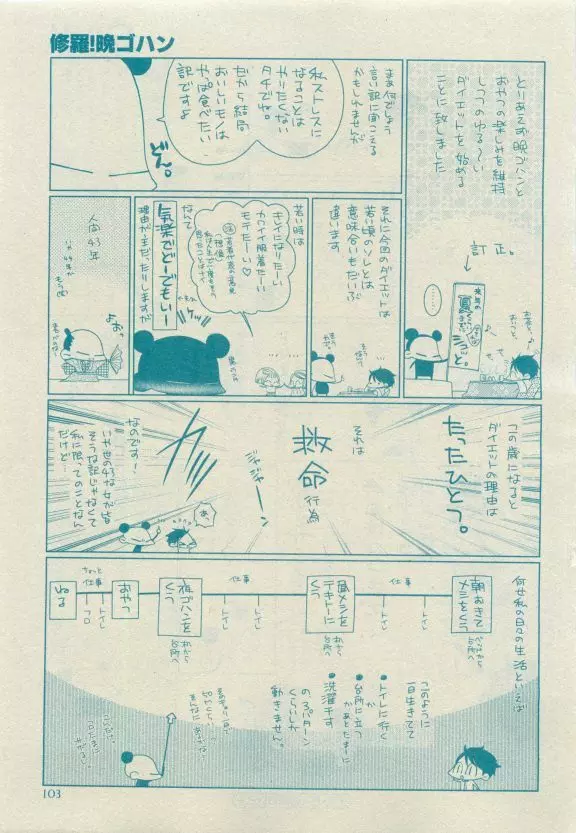 修羅!晩ゴハン
とりあえず晩ゴハンと
おやつの楽しみを維持
しつつのゆる〜い
ダイエットを始める
ことに致しました
訂正。
まあ何でしょう
言い訳に聞こえる
かもしれませんが
私ストレスに
なることは
やりたくない
タチでね。
だから結局
おいしいモノは
やっぱ食べたい
訳ですよ
どん。
それに今回のダイエットは
若い頃のソレとは
意味合いもだいぶ
違います
若い時は
キレイになりたーい
カワイイ服着たーい
モテたーい♡
なんて
気楽でどーでもいー
理由が主だったりしますが
人間43年
この歳になると
ダイエットの理由は
たったひとつ。
それは
救命
行為
ジャジャーン
なのです!
いや世の43な女が皆
そうな訳じゃなくて
私に限ってのことなん
だけど…
あ
何せ私の日々の生活といえば
朝おきて
メシをくう
トイレ
仕事
昼メシを
テキトーに
くう
トイレ
仕事
夜ゴハンを
くう
おやつ
ちょっと
仕事
トイレ
フロ
ねる
このように
一日生きてて
●トイレに行く
か
●台所に立つ
かあとたまーに
●洗濯干す
の3パターン
くらいしか
動きません。
103